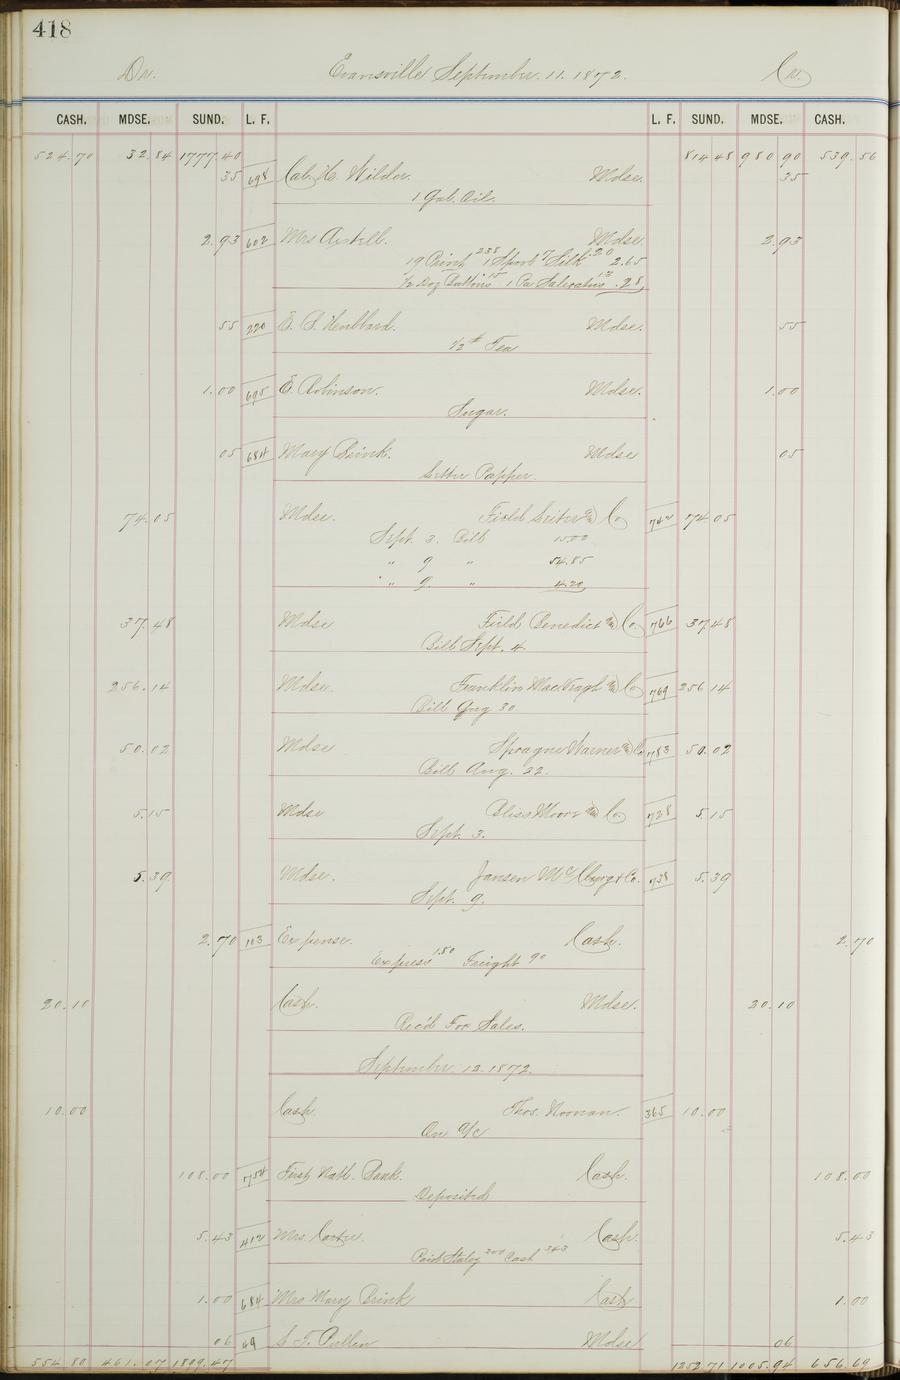 418
Dr. Evansville September. 11. 1872. Cr.
CASH. MDSE. SUND. L. F. L. F. SUND. MDSE. CASH.
524.70 32.84 1777.40 814 48 980 90 539.56
35 698 Cal. H. Wilder. Mdse. 35
1 Gal. Oil.
2.93 602 Mrs Axtell. Mdse 2.93
19 Print 238 1 Spool " Silk 20 2.65
1/2 Doz Buttons 15 1 Pa Saleratus 13 .28
55 220 E. B. Hubbard. Mdse. 55
1/2 # Tea
1.00 695 E. Robinson. Mdse. 1.00
Sugar.
05 684 Mary Brink. Mdse 05
Letter Papper.
74.05 Mdse. Field Leiter & Co 742 74 05
Sept. 3. Bill 15.00
" 9 " 54.85
" 9. " 4.20
37.48 Mdse Field Benedict & Co. 766 37.48
Bill Sept. 4.
256.14 Mdse. Franklin MacVeagh & Co 769 256 14
Bill Aug 30
50.02 Mdse Sprague Warner & Co 783 50.02
Bill Aug. 22.
5.15 Mdse Bliss Moore & Co. 728 5.15
Sept. 3.
5.39 Mdse. Jansen McClurg & Co. 738 5.39
Sept. 9.
2.70 103 Expense. Cash. 2.70
Express 1.80 Freight 90
20.10 Cash. Mdse. 20.10
Rec'd For Sales.
September 12. 1872.
10.00 Cash Thos. Noonan. 365 10.00
On a/c
108.00 754 First Natl. Bank. Cash. 108.00
Deposited
5.43 412 Mrs. Carter. Cash 5.43
Paid Staley 200 Cash 343
1.00 684 Mrs Mary Brink Cash 1.00
06 49 S. T. Pullen Mdse 06
554.80 461.07 1899.47 1252.71 1005.94 656.69